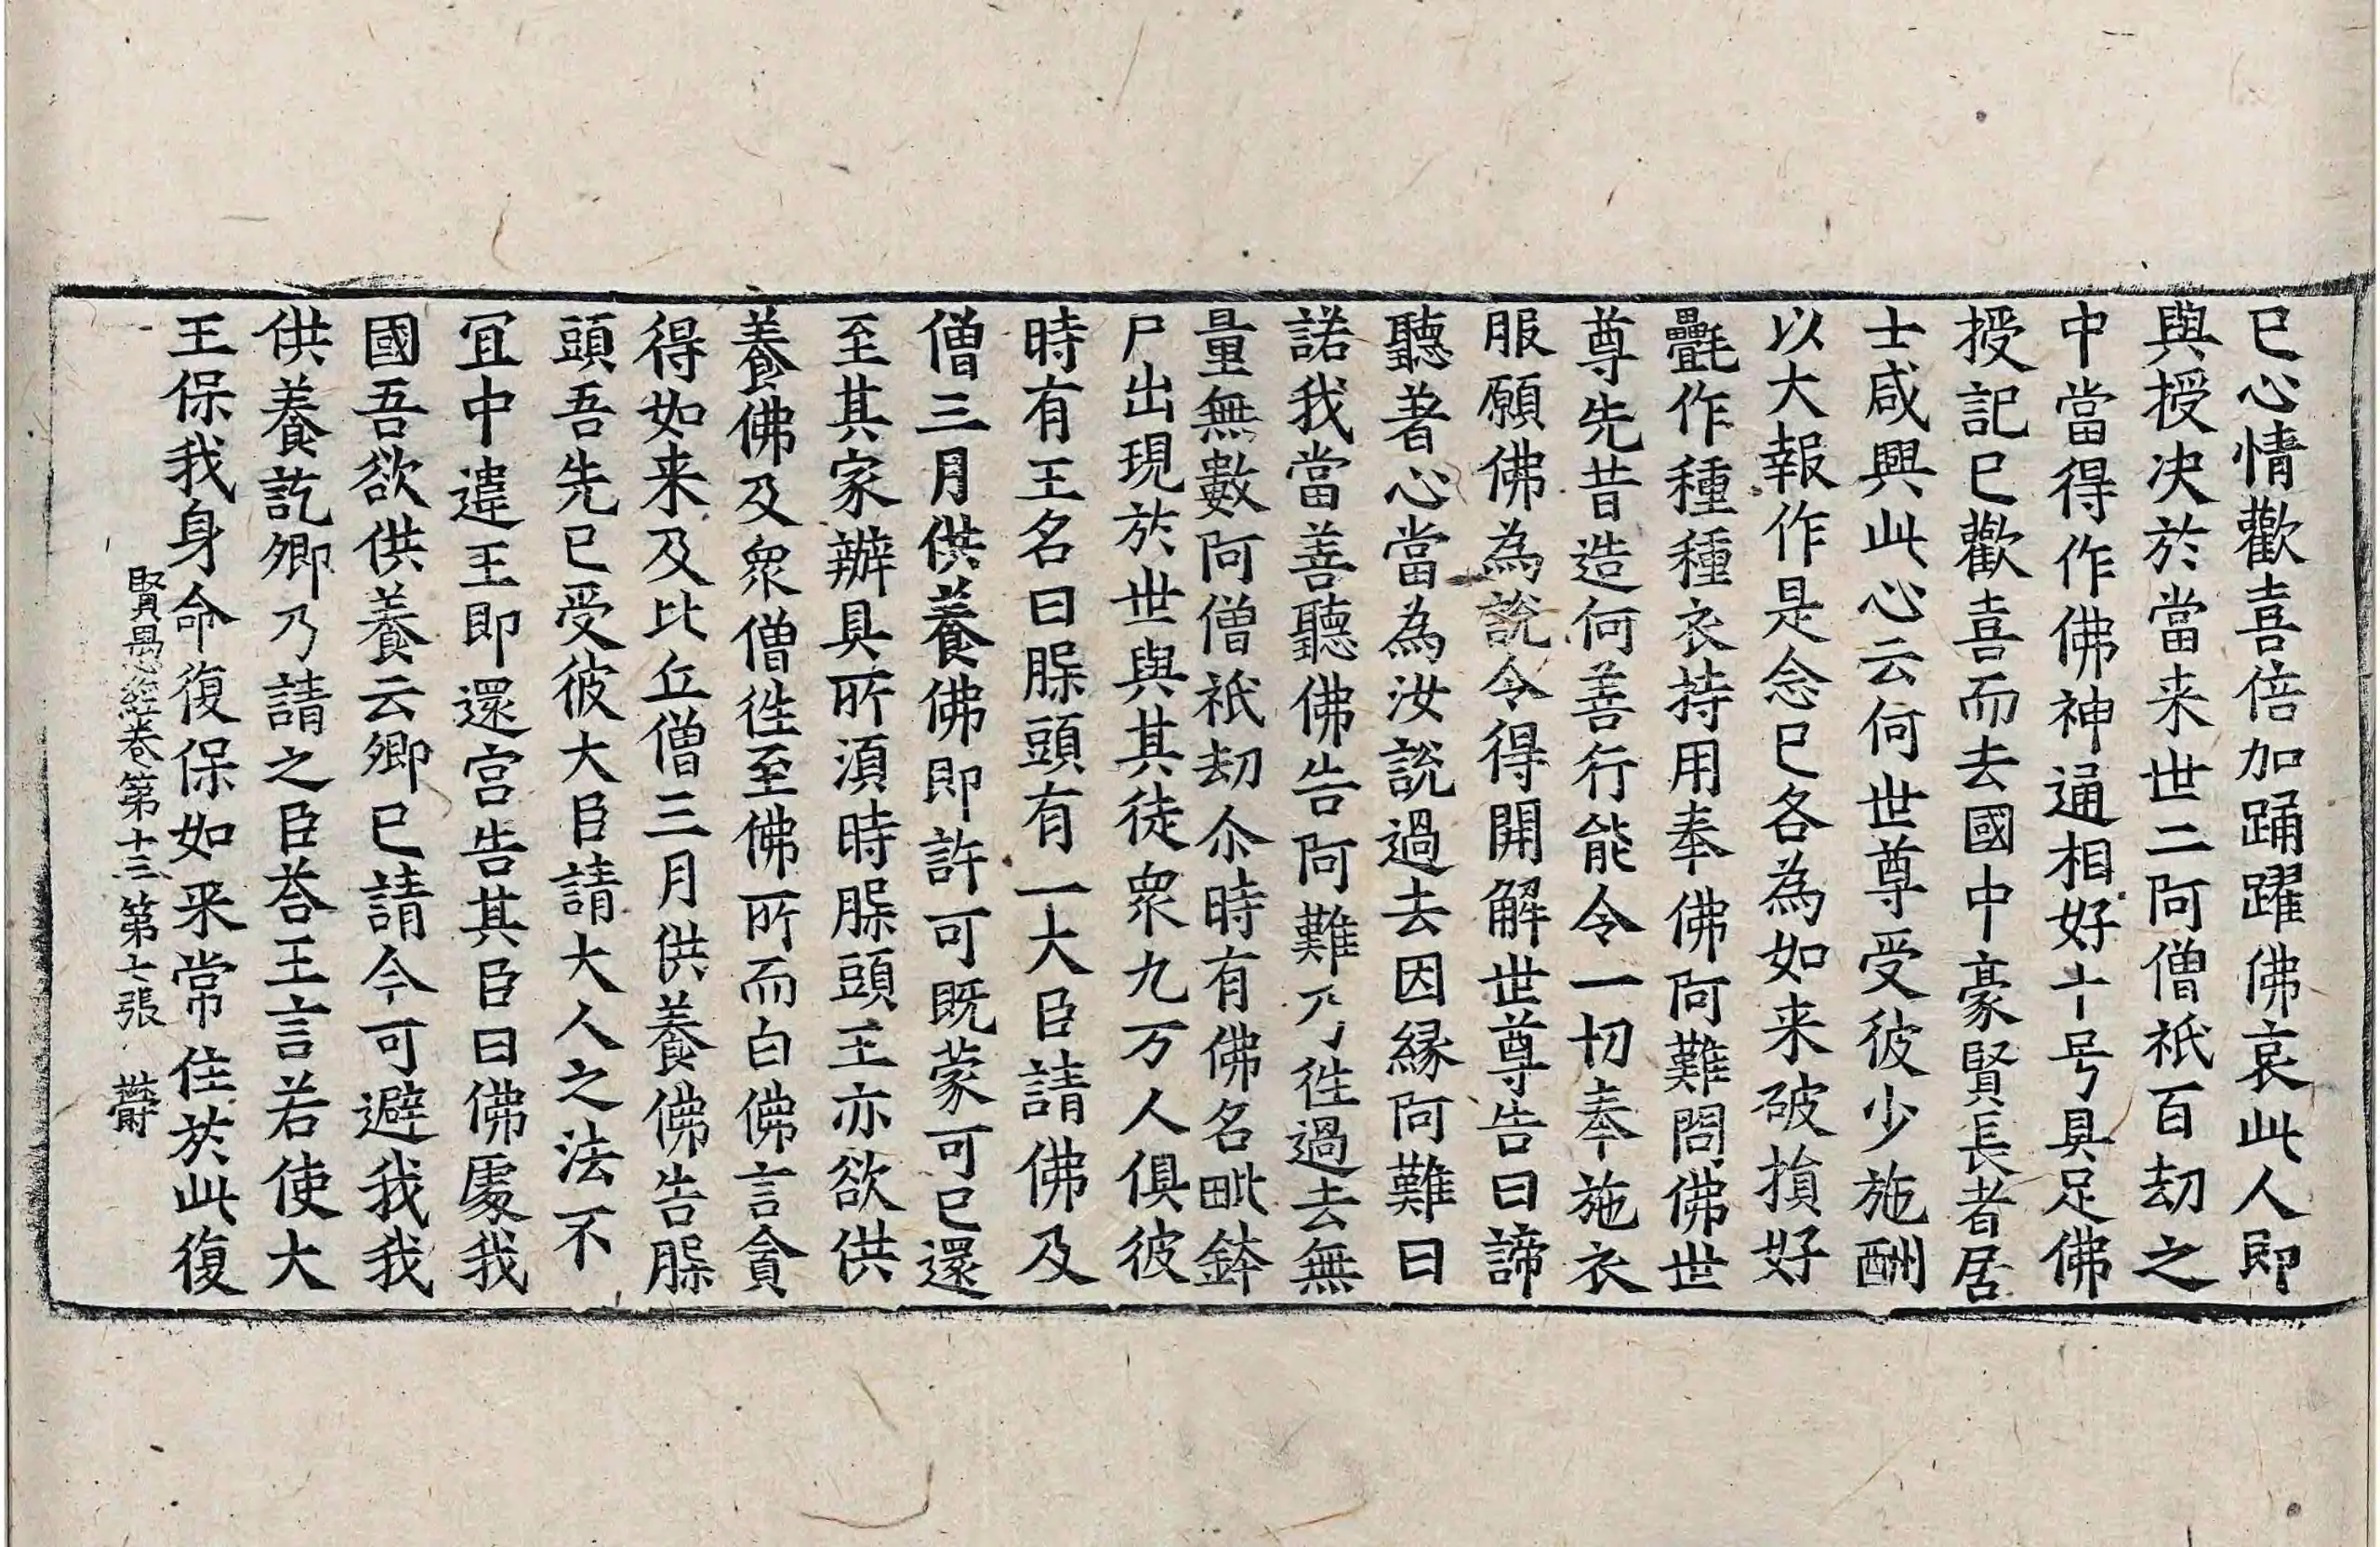 已心情歡喜倍加踊躍佛哀此人即
與授决於當来世二阿僧祇百劫之
中當得作佛神通相好十号具足佛
授記已歡喜而去國中豪賢長者居
士咸興此心云何世尊受彼少施酬
以大報作是念已各為如来破損好
㲲作種種衣持用奉佛阿難問佛世
尊先昔造何善行能令一切奉施衣
服願佛為說令得開解世尊告曰諦
聽著心當為汝說過去因緣阿難曰
諾我當善聽佛告阿難乃徃過去無
量無數阿僧祇劫尒時有佛名毗鉢
尸出現於世與其徒衆九万人俱彼
時有王名曰䐗頭有一大臣請佛及
僧三月供養佛即許可既蒙可已還
至其家辦具所湏時䐗頭王亦欲供
養佛及衆僧徃至佛所而白佛言貪
得如来及比丘僧三月供養佛告䐗
頭吾先已受彼大臣請大人之法不
冝中違王即還宮告其臣曰佛處我
國吾欲供養云卿已請今可避我我
供養訖卿乃請之臣荅王言若使大
王保我身命復保如来常住於此復
賢愚經卷第十三 第七張 欝